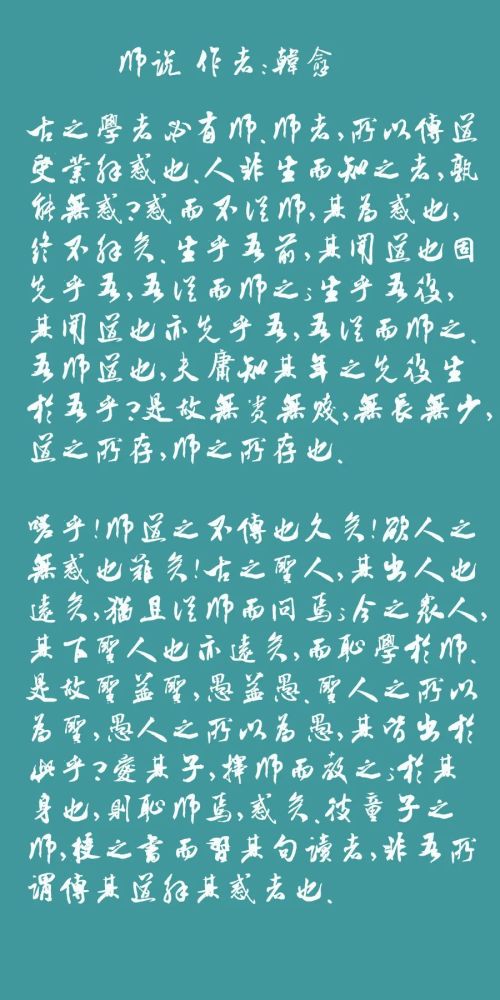 师说 作者:韓愈
古之學者必有师.师者,所以傳道
受業解惑也.人非生而知之者,孰
能無惑?惑而不從师,其為惑也,
終不解矣.生乎吾前,其聞道也固
先乎吾,吾從而师之;生乎吾後,
其聞道也亦先乎吾,吾從而师之.
吾师道也,夫庸知其年之先後生
於吾乎?是故無贵無賤,無長無少,
道之所存,师之所存也.
嗟乎!师道之不傳也久矣!欲人之
無惑也難矣!古之聖人,其出人也
遠矣,猶且從师而问焉;今之衆人,
其下聖人也亦遠矣,而恥學於师.
是故聖益聖,愚益愚.聖人之所以
為聖,愚人之所以為愚,其皆出於
此乎?愛其子,擇师而教之;於其
身也,則恥师焉,惑矣.彼童子之
师,授之書而習其句讀者,非吾所
謂傳其道解其惑者也.